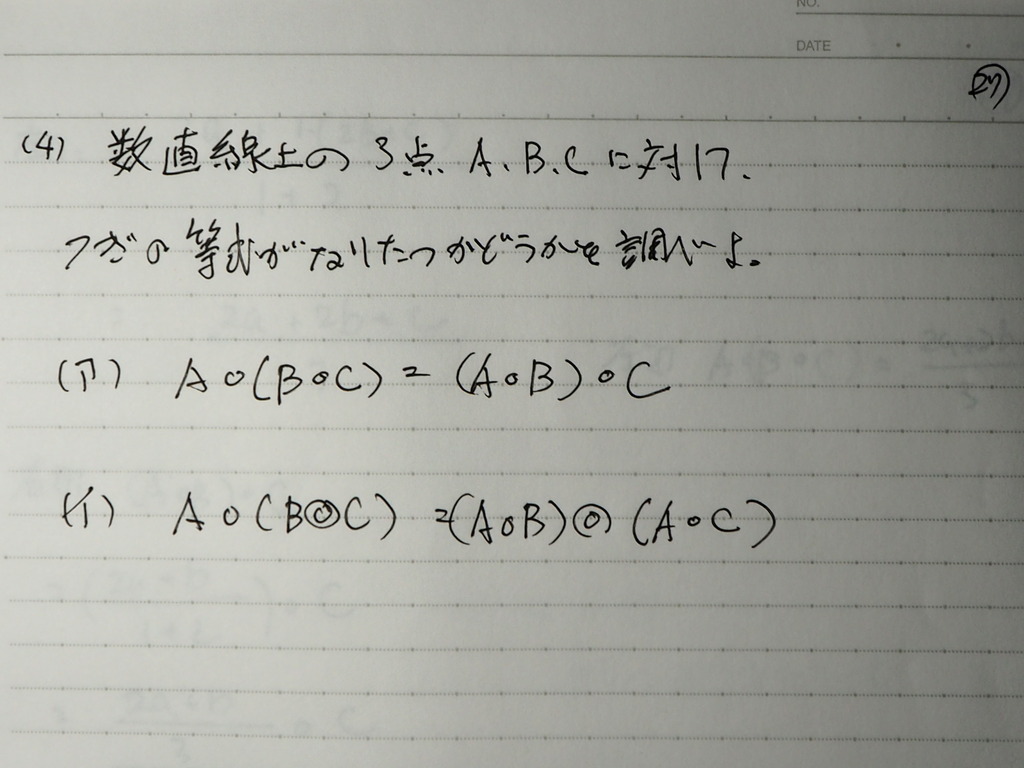 NO.
DATE
(4) 数直線上の3点A、B、Cに対して、
つぎの等式がなりたつかどうかを調べよ。
(ア) A∘(B∘C) = (A∘B)∘C
(イ) A∘(B◎C) =(A∘B)◎(A∘C)